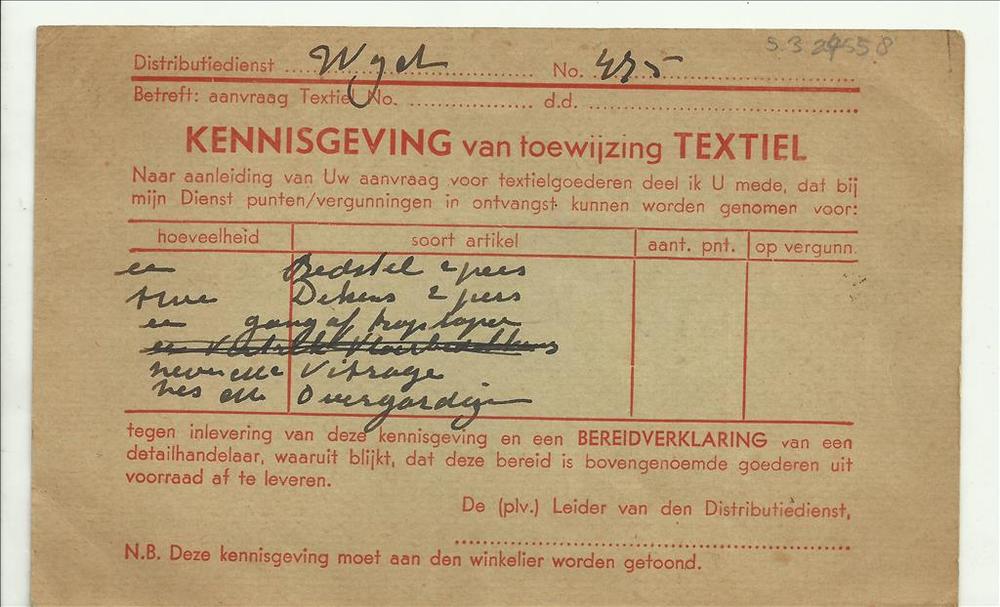 S.3 29558
Distributiedienst .......... No. 495
Betreft: aanvraag Textiel No. .......... d.d. ..........
KENNISGEVING van toewijzing TEXTIEL
Naar aanleiding van Uw aanvraag voor textielgoederen deel ik U mede, dat bij
mijn Dienst punten/vergunningen in ontvangst kunnen worden genomen voor:
hoeveelheid soort artikel aant. pnt. op vergunn.
een Bedstel 2 pers
twee Dekens 2 pers
een gang of traploper
een
el Vitrage
zes el Overgordijn
tegen inlevering van deze kennisgeving en een BEREIDVERKLARING van een
detailhandelaar, waaruit blijkt, dat deze bereid is bovengenoemde goederen uit
voorraad af te leveren.
De (plv.) Leider van den Distributiedienst,
N.B. Deze kennisgeving moet aan den winkelier worden getoond.